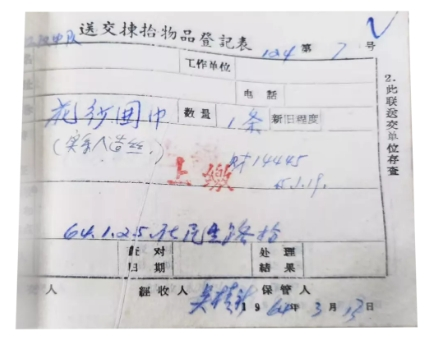 送交揀拾物品登記表
104 第 7 号
工作單位
电 話
花纱围巾 数量 1条 新旧程度
(实系人造丝.)
上缴 财14445
65.1.19.
64.1.25.在民生路拾
日期 处理結果
人 經收人 保管人
1964年3月13日
2.此联送交单位存查